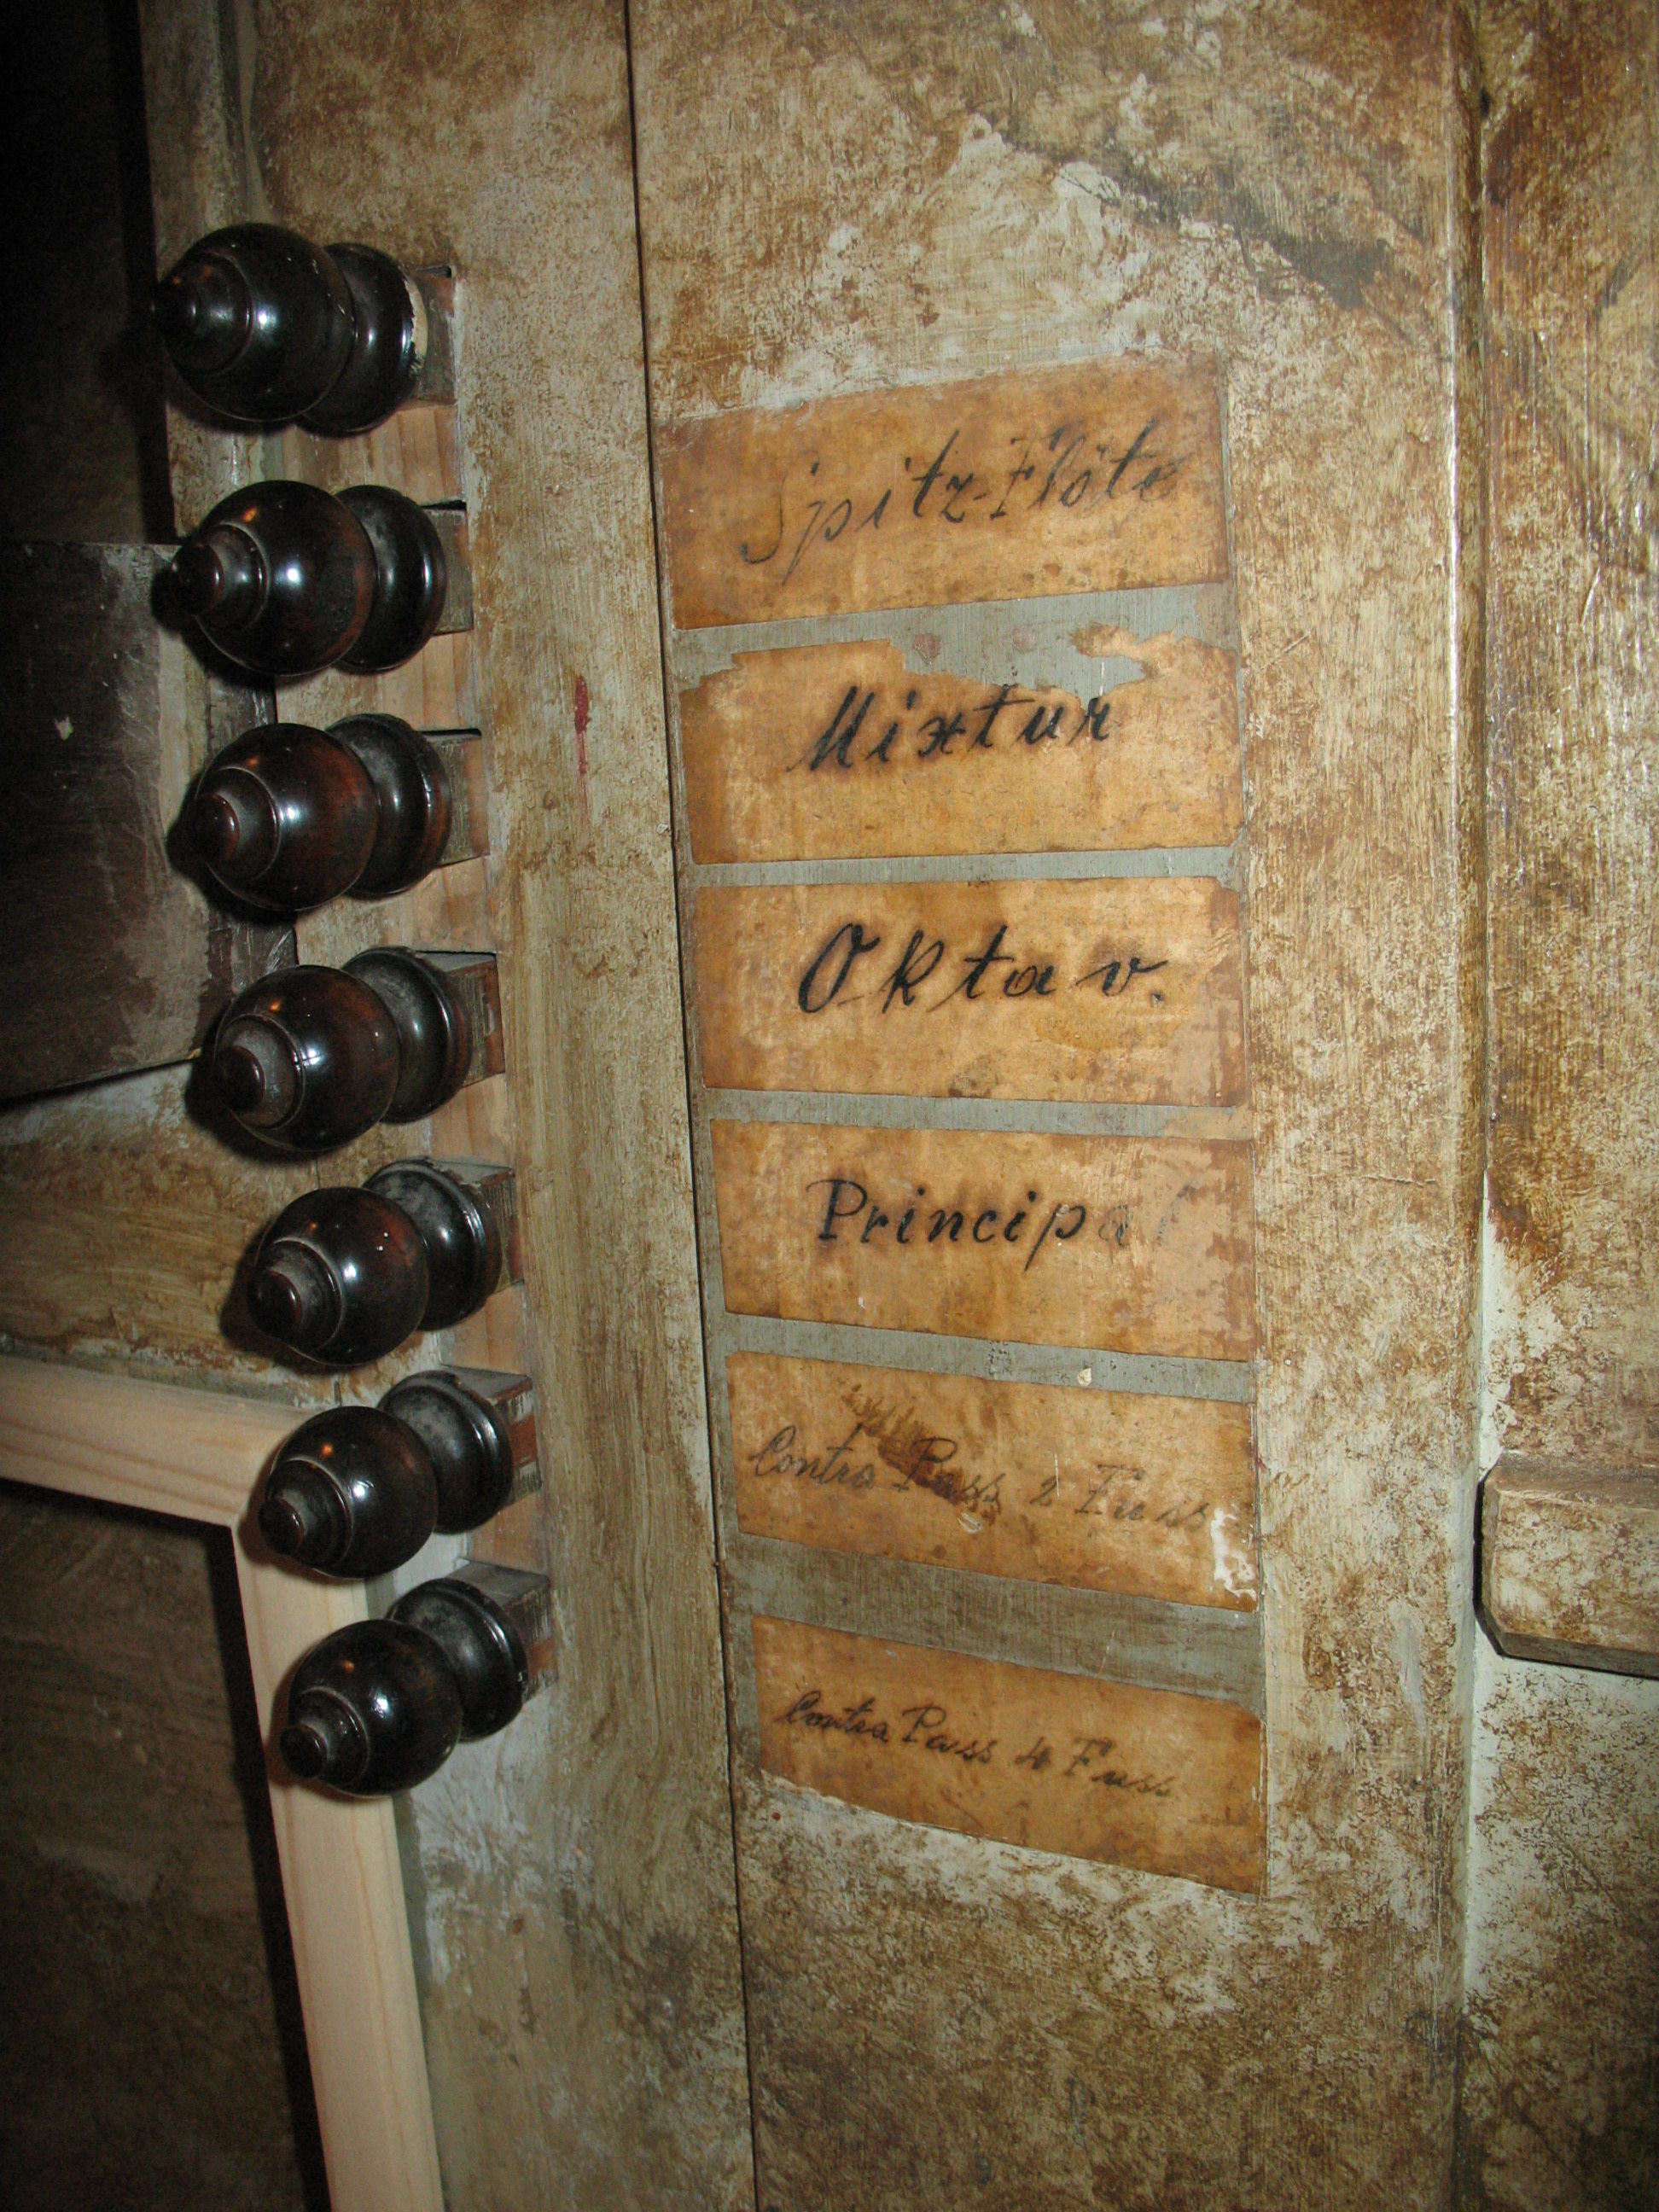 Spitz-Flöte
Mixtur
Oktav.
Principal
Contra Pass 2 Fuss
Contra Pass 4 Fuss